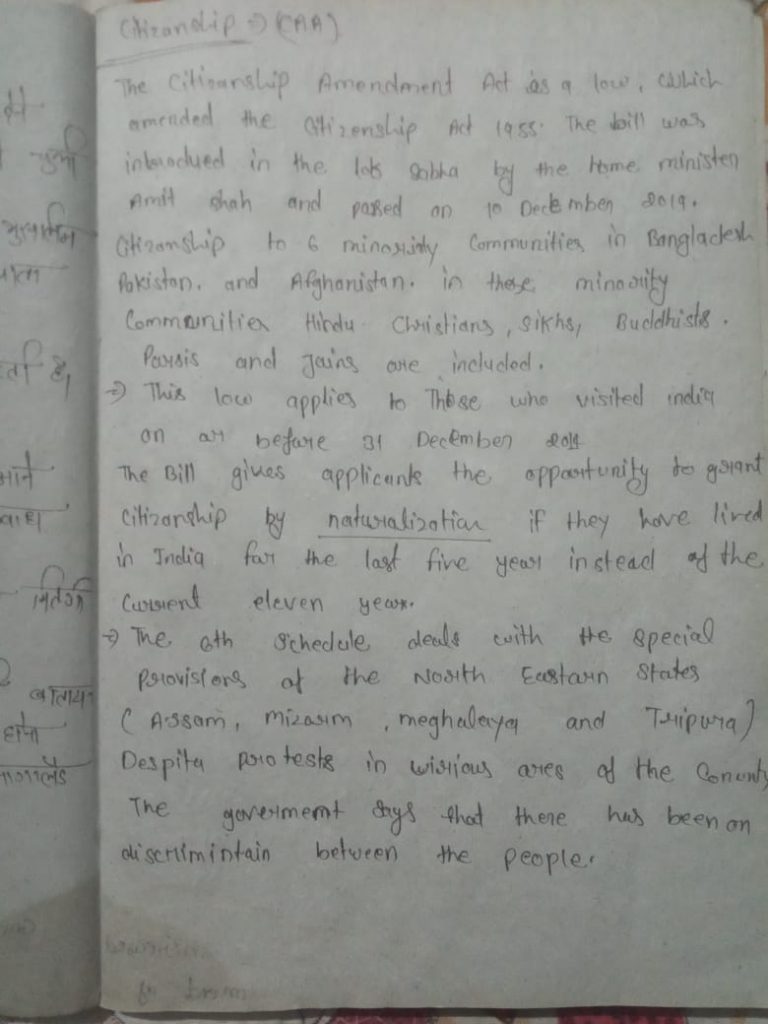 Citizanship => (CAA)
The Citizanship Amendment Act is a low, which
amended the Citizenship Act 1955. The bill was
introdued in the lok sabha by the Home minister
Amit shah and passed on 10 December 2019.
Citizanship to 6 minority Communities in Bangladesh
Pakistan, and Afghanistan. in these minority
Communities Hindu Christians, Sikhs, Buddhists.
Parsis and Jains are included.
=> This low applies to Those who visited india
on ar before 31 December 2014
The Bill gives applicants the oppartunity to grant
Citizanship by naturalization if they have lived
in India far the last five year instead of the
Current eleven year.
=> The 6th Schedule deals with the special
Provisions of the North Eastarn States
(Assam, mizarm, meghalaya and Tripura)
Despita protests in wirious ares of the
The goverment says that there has been on
discrimintain between the people.